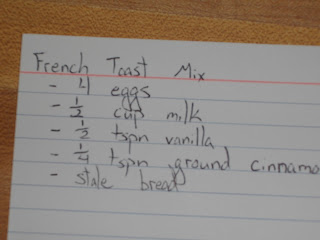 French Toast Mix
- 4 eggs
- 1/2 cup milk
- 1/2 tspn vanilla
- 1/4 tspn ground cinnamo
- stale bread